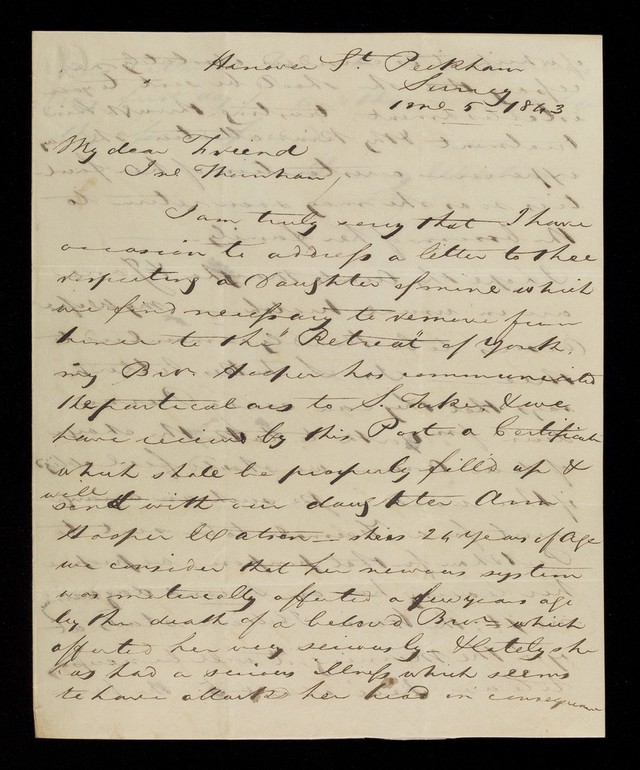 Hanover St Peckham
Surrey
12 mo 5 1843
My dear Friend
Jno Thurnham,
I am truly sorry that I have
occasion to address a letter to thee
respecting a Daughter of mine which
we find necessary to remove from
hence to the "Retreat" of York,
my Bror Hooper has communicated
the particulars to S. Tuke, & we
have received by this Post a Certificate
which shall be properly fill'd up &
will
send with our daughter Ann
Hooper Watson — she is 24 years of Age
we consider that her nervous system
was materially affected a few years ago
by the death of a beloved Bror which
affected her very seriously — & lately she
has had a serious illness which seems
to have attack'd her head in consequence